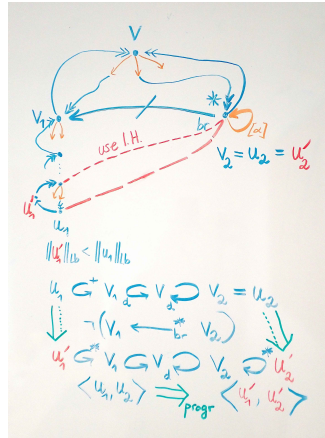 V
V₁
* bc [α]
use I.H.
V₂ = u₂ = u₂′
u₁′
u₁
‖u₁′‖lb < ‖u₁‖lb
u₁ ↺⁺ V₁ d↺ V d↺ V₂ = u₂
¬(V₁ ← * br V₂)
u₁′ ↺* V₁ d↺ V d↺ V₂ ↺* u₂′
⟨u₁, u₂⟩ ⇒ progr ⟨u₁′, u₂′⟩